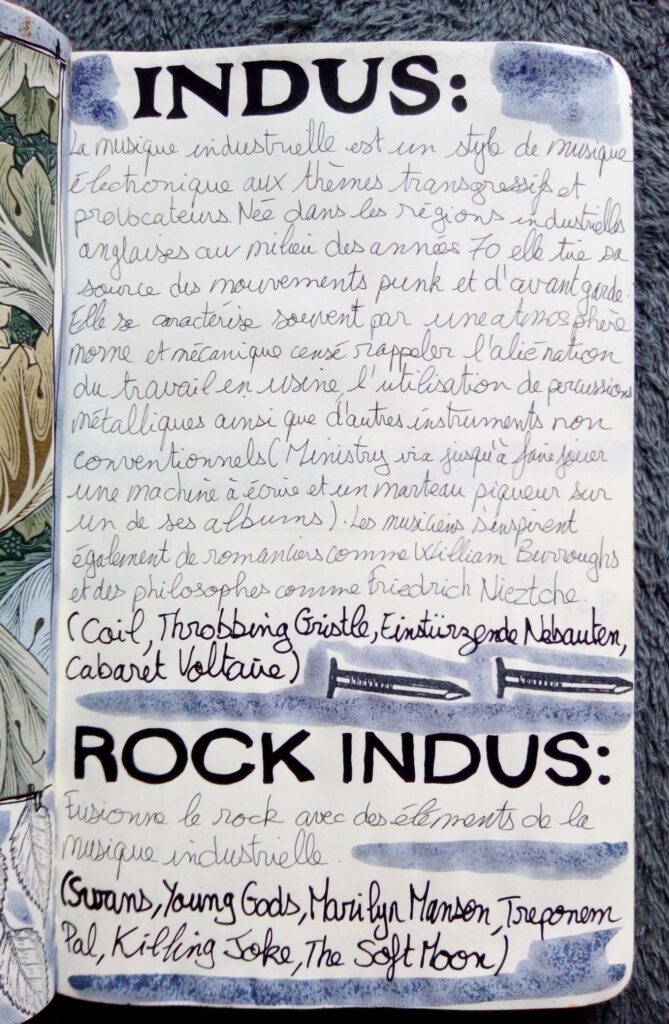 INDUS:
La musique industrielle est un style de musique
électronique aux thèmes transgressifs et
provocateurs. Née dans les régions industrielles
anglaises au milieu des années 70 elle tire sa
source des mouvements punk et d'avant garde.
Elle se caractérise souvent par une atmosphère
morne et mécanique censé rappeler l'aliénation
du travail en usine, l'utilisation de percussions
métalliques ainsi que d'autres instruments non
conventionnels (Ministry ira jusqu'à faire jouer
une machine à écrire et un marteau piqueur sur
un de ses albums). Les musiciens s'inspirent
également de romanciers comme William Burroughs
et des philosophes comme Friedrich Nieztche.
(Coil, Throbbing Gristle, Einstürzende Nebauten,
Cabaret Voltaire)
ROCK INDUS:
Fusionne le rock avec des éléments de la
musique industrielle.
(Swans, Young Gods, Marilyn Manson, Treponem
Pal, Killing Joke, The Soft Moon)